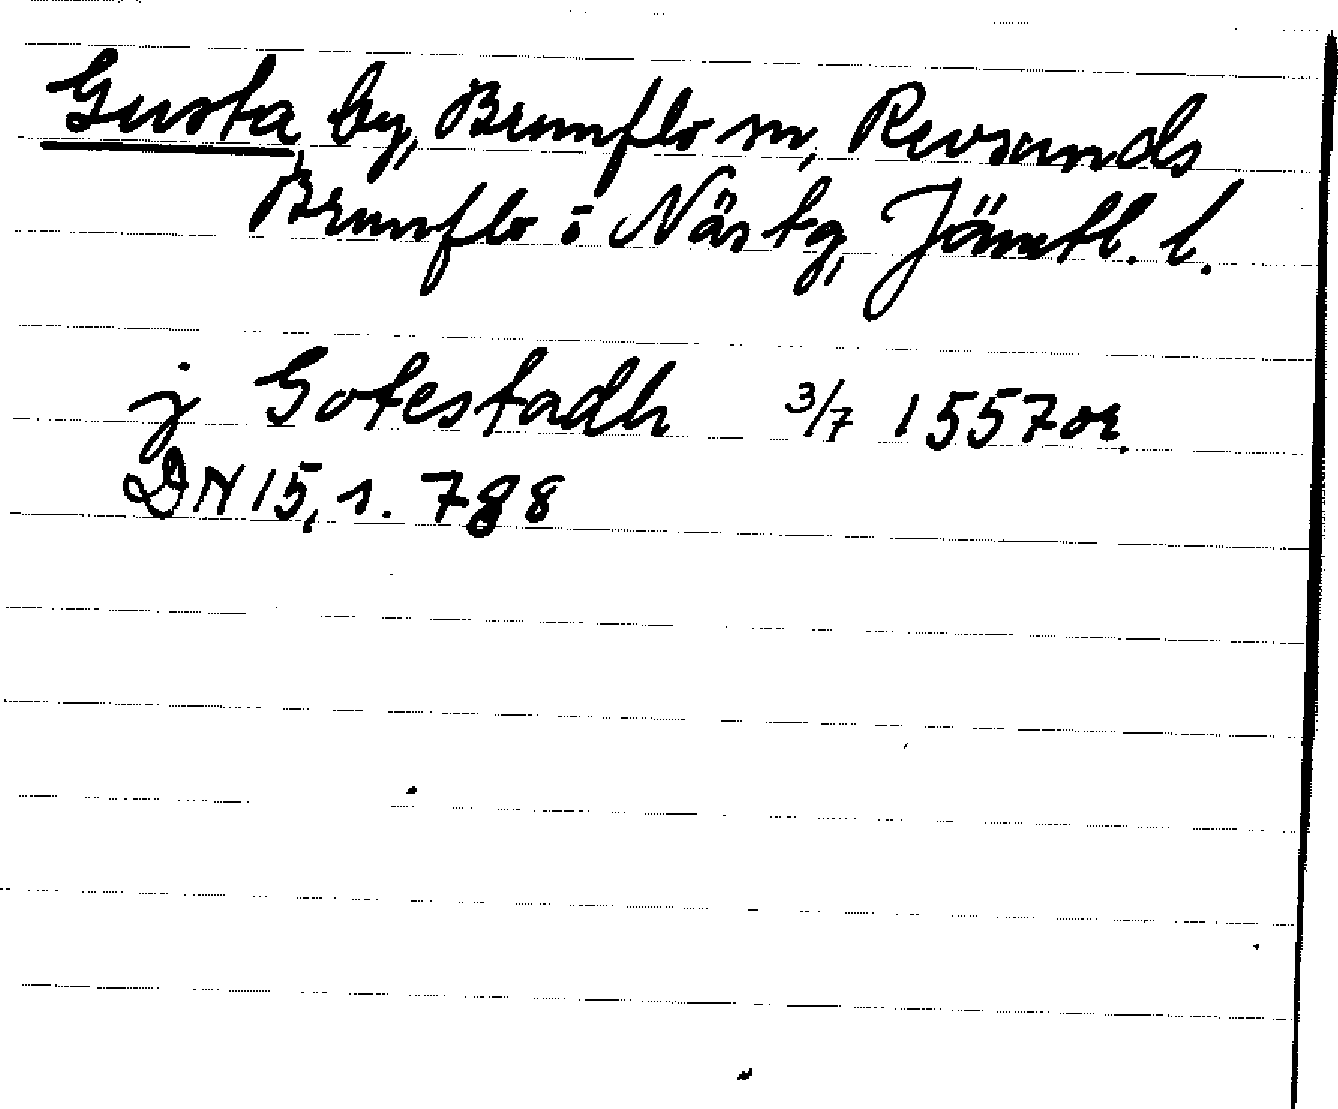 Gusta by, Brunflo sn, Revsunds
Brunflo o Näs tg, Jämtl. l.
j Gotestadh 3/7 1557 or.
DN 15, s. 788